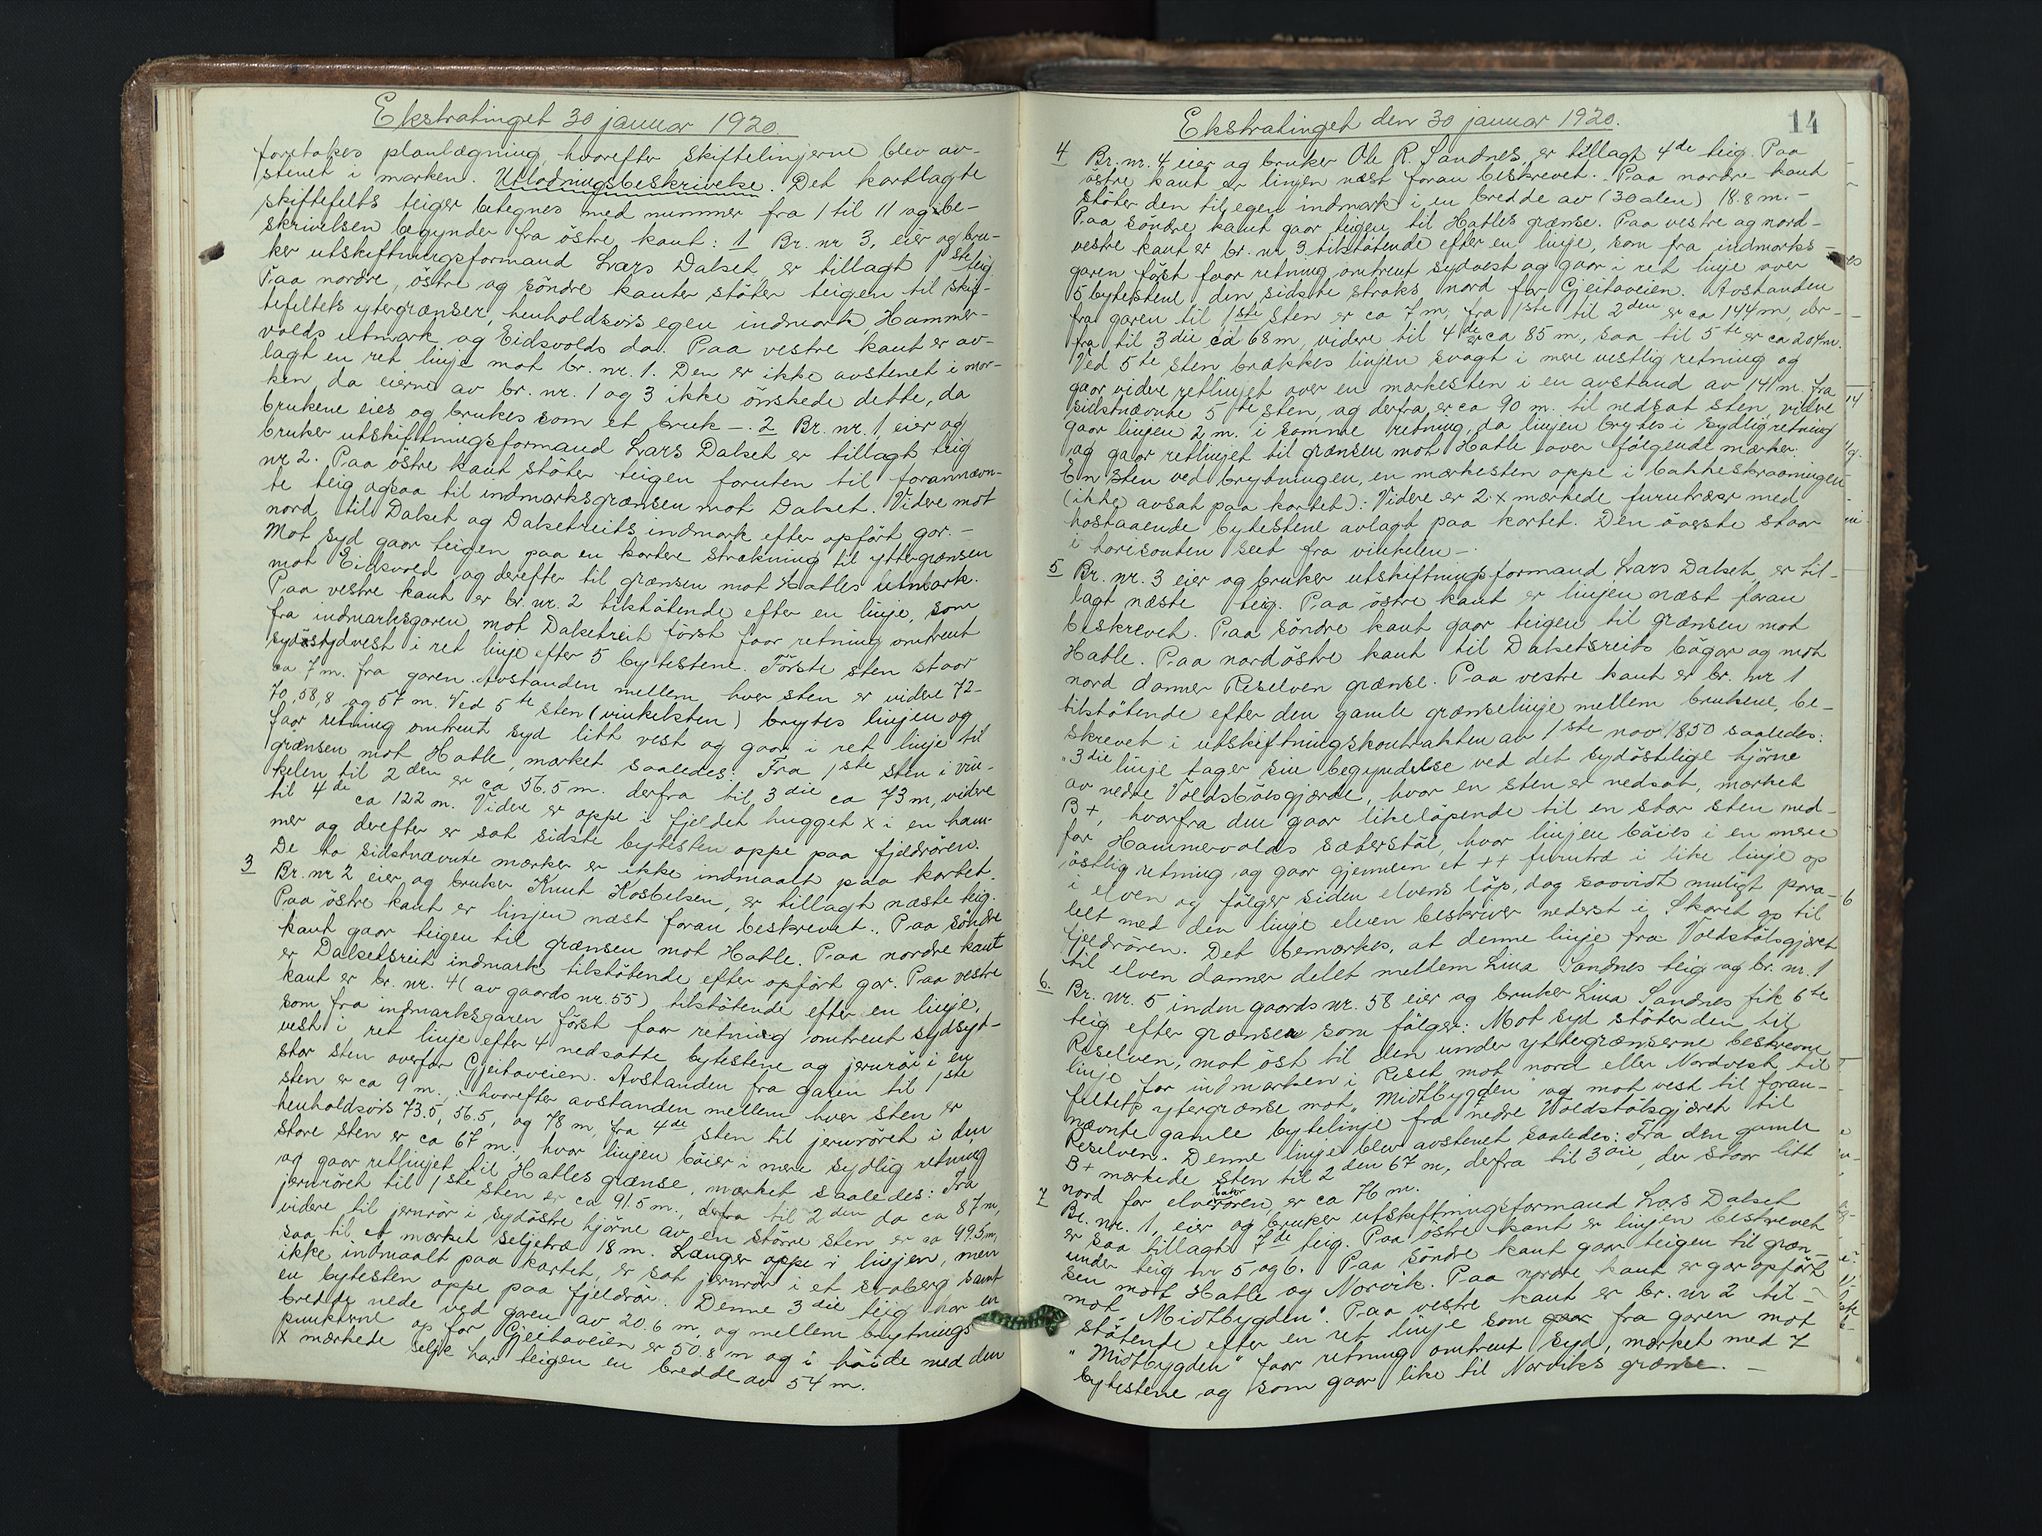 Ekstratinget 30 januar 1920
foretokes planlægning, hvorefter skiftelinjerne blev av-
stenet i marken. Utlodningsbeskrivelse. Det kartlagte
skiftefelts teiger betegnes med nummer fra 1 til 11 og be-
skrivelsen begynder fra östre kant: 1 Br. nr 3, eier og bru-
ker utskiftningsformand Lars Dalset, er tillagt 1ste teig.
Paa nordre, östre og söndre kanter stöter teigen til skif-
tefeltets ytergrænser, henholdsvis egen indmark, Hammer-
volds utmark og Eidsvolds do. Paa vestre kant er av-
lagt en ret linje mot br. nr. 1. Den er ikke avstenet i mar-
ken da eierne av br. nr. 1 og 3 ikke önskede dette, da
brukene eies og brukes som et bruk -. 2 Br. nr. 1, eier og
bruker utskiftningsformand Lars Dalset er tillagt teig
nr 2. Paa östre kant stöter teigen foruten til forannævn-
te teig ogsaa til indmarksgrænsen mot Dalset. Videre mot
nord til Dalset og Dalsetreits indmark efter opfört gar. -
Mot syd gaar teigen paa en kortere strækning til yttergrænsen
mot Eidsvold og derefter til grænsen mot Hatles utmark.
Paa vestre kant er br. nr. 2 tilstötende efter en linje, som
fra indmarksgaren mot Dalsetreit först faar retning omtrent
sydsydvest i ret linje efter 5 bytestene. Förste sten staar
ca 7 m. fra garen. Avstanden mellem hver sten er videre 72-
70, 58,8 og 57 m. Ved 5te sten (vinkelsten) brytes linjen og
faar retning omtrent syd litt vest og gaar i ret linje til
grænsen mot Hatle, mærket saaledes: Fra 1ste sten i vin-
kelen til 2den er ca 56.5 m. derfra til 3die ca 73 m, videre
til 4de ca 122 m. Videre er oppe i fjeldet hugget x i en ham-
mer og derefter er sat sidste bytesten oppe paa fjeldrören.
De to sidstnævnte mærker er ikke indmaalt paa kartet.
3 Br. nr 2 eier og bruker Knut Kosbelsen, er tillagt næste teig.
Paa östre kant er linjen næst foran beskrevet. Paa söndre
kant gaar teigen til grænsen mot Hatle. Paa nordre kant
er Dalsetsreit indmark tilstötende efter opfört gar. Paa vestre
kant er br. nr. 4 (av gaards nr. 55) tilstötende efter en linje,
som fra indmarksgaren först faar retning omtrent sydsyd-
vest i ret linje efter 4 nedsatte bytestene og jernrör i en
stor sten overfor Gjeitaveien. Avstanden fra garen til 1ste
sten er ca 9 m, hvorefter avstanden mellem hver sten er
henholdsvis 73.5, 56.5, og 78 m, fra 4de sten til jernröret i den
store sten er ca 67 m, hvor linjen böier i mere sydlig retning
og gaar retlinjet til Hatles grænse, mærket saaledes: Fra
jernröret til 1ste sten er ca 91.5 m., derfra til 2den do ca 87 m,
videre til jernrör i sydöstre hjörne av en större sten er ca 99.5 m,
saa til et mærket seljetræ 18 m. Længer oppe i linjen, men
ikke indmaalt paa kartet, er sat jernrör i et svaberg samt
en bytesten oppe paa fjeldrör. Denne 3die teig har en
bredde nede ved garen av 20.6 m, og mellem brytnings
punkterne op for Gjeitaveien er 50.8 m og i höide med den
x mærkede selje har teigen en bredde av 54 m.
Ekstratinget den 30 januar 1920.
14
4 Br. nr. 4 eier og bruker Ole R. Sandnes, er tillagt 4de teig. Paa
östre kant er linjen næst foran beskrevet. Paa nordre kant
stöter den til egen indmark i en bredde av (30 alen) 18.8 m. -
Paa söndre kant gaar teigen til Hatles grænse. Paa vestre og nord-
vestre kant er br. nr 3 tilstötende efter en linje, som fra indmarks-
garen först faar retning omtrent sydvest og gaar i ret linje over
5 bytestene, den sidste straks nord for Gjeitaveien. Avstanden
fra garen til 1ste sten er ca 7 m, fra 1ste til 2den er ca 144 m, der-
fra til 3die ca 68 m, videre til 4de er ca 85 m, saa til 5te er ca 204 m.
Ved 5te sten brækkes linjen svagt i mere vestlig retning og
gaar videre retlinjet over en mærkesten i en avstand av 141 m. fra
sidstnævnte 5te sten, og derfra er ca 90 m. til nedsat sten, videre
gaar linjen 2 m. i samme retning, da linjen brytes i sydlig retning
og gaar retlinjet til grænsen mot Hatle over fölgende mærker:
En sten ved brytningen, en mærkesten oppe i bakkeskraaningen
(ikke avsat paa kartet): Videre er 2 x mærkede furutræer med
hostaaende bytestene avlagt paa kartet. Den överste staar
i horisonten seet fra vinkelen -.
5 Br. nr. 3 eier og bruker utskiftningsformand Lars Dalset er til-
lagt næste teig. Paa östre kant er linjen næst foran
beskrevet. Paa söndre kant gaar teigen til grænsen mot
Hatle. Paa nordöstre kant til Dalsetsreits bögar og mot
nord danner Riselven grænse. Paa vestre kant er br. nr 1
tilstötende efter den gamle grænselinje mellem brukene, be-
skrevet i utskiftningskontrakten av 1ste nov 1850 saaledes:
"3die linje tager sin begyndelse ved det sydöstlige hjörne
av nedre Voldstölsgjærde, hvor en sten er nedsat, mærket
B+, hvorfra den gaar likelöpende til en stor sten ned-
for Hammervolds sæterstöl, hvor linjen böies i en mere
östlig retning og gaar gjennem et ++ furutræ i like linje op
i elven og fölger siden elvens löp, dog saavidt muligt para-
lelt med den linje elven beskriver nederst i Skaret op til
fjeldrören. Det bemærkes, at denne linje fra Voldstölsgjæret
til elven danner delet mellem Lina Sandnes teig og br. nr. 1
6. Br. nr. 5 inden gaards nr. 58 eier og bruker Lina Sandnes fik 6te
teig efter grænser som fölger: Mot syd stöter den til
Riselven, mot öst til den under yttergrænserne beskrevne
linje for indmarken i Riset mot nord eller Nordvest til
feltets ytergrænse mot "Midtbygden" og mot vest til foran-
nævnte gamle bytelinje fra nedre Voldstölsgjæret til
Riselven. Denne linje blev avstenet saaledes: Fra den gamle
B+ mærkede sten til 2den 67 m, derfra til 3die, der staar litt
nord for elvabakrören, er ca 76 m.
7 Br. nr. 1, eier og bruker utskiftningsformand Lars Dalset
er saa tillagt 7de teig. Paa östre kant er linjen beskrevet
under teig nr 5 og 6. Paa söndre kant gaar teigen til græn-
sen mot Hatle og Norvik. Paa nordre kant er gar opfört
mot "Midtbygden". Paa vestre kant er br. nr 2 til-
stötende efter en ret linje som gaar fra garen mot
"Midtbygden" faar retning omtrent syd, mærket med 7
bytestene og som gaar like til Norviks grænse. -